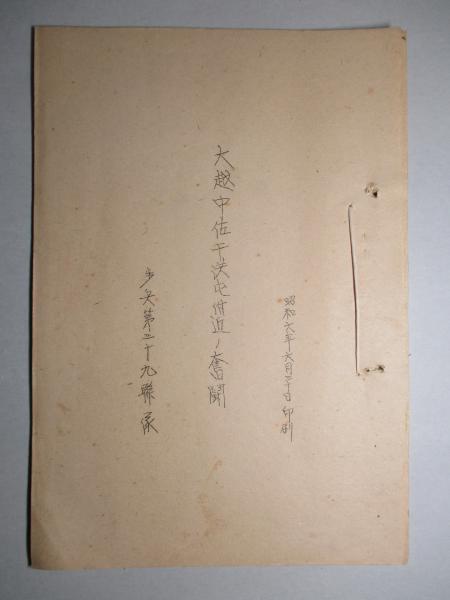 昭和六年六月二十日印刷
大越中佐干洪屯附近ノ奮闘
歩兵第二十九聯隊